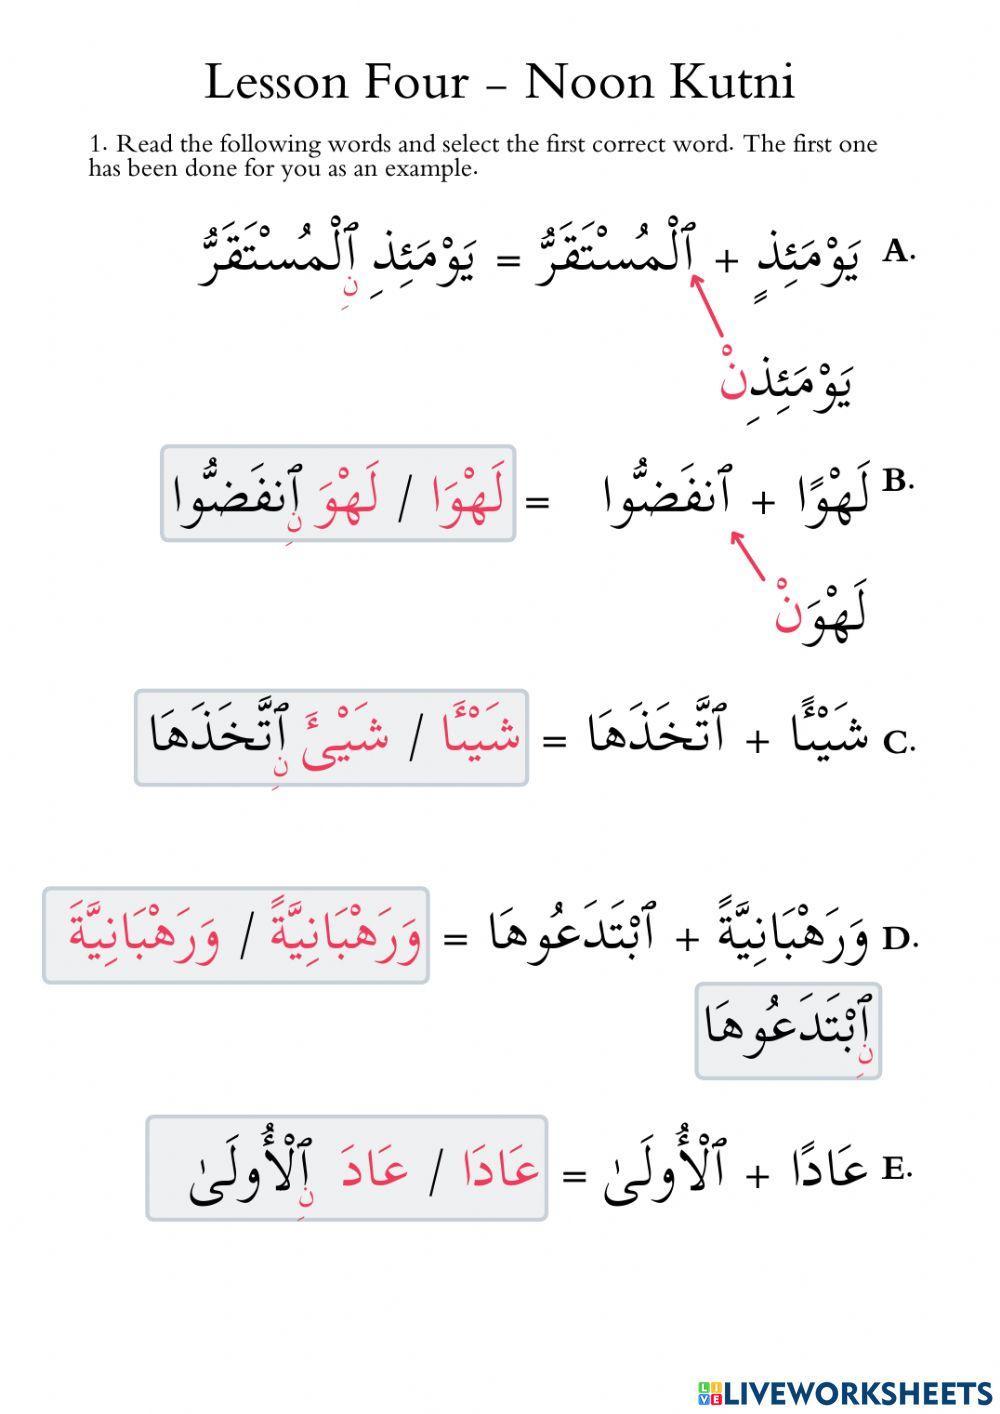 Lesson Four – Noon Kutni
1. Read the following words and select the first correct word. The first one
has been done for you as an example.
A. يَوْمَئِذٍ + ٱلْمُسْتَقَرُّ = يَوْمَئِذِ نِ ٱلْمُسْتَقَرُّ
يَوْمَئِذِنْ
B. لَهْوًا + ٱنفَضُّوا = لَهْوَا / لَهْوَ نِ ٱنفَضُّوا
لَهْوَنْ
C. شَيْـًٔا + ٱتَّخَذَهَا = شَيْـَٔا / شَيْئَ نِ ٱتَّخَذَهَا
D. وَرَهْبَانِيَّةً + ٱبْتَدَعُوهَا = وَرَهْبَانِيَّةً / وَرَهْبَانِيَّةَ
نِ ٱبْتَدَعُوهَا
E. عَادًا + ٱلْأُولَىٰ = عَادَا / عَادَ نِ ٱلْأُولَىٰ
LIVE LIVEWORKSHEETS